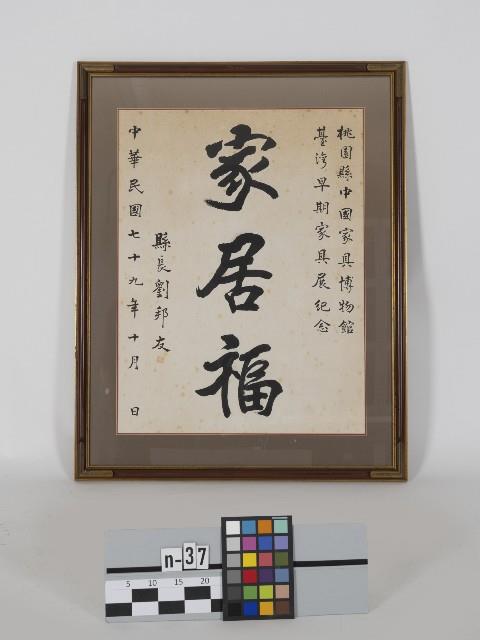 桃園縣中國家具博物館
臺灣早期家具展紀念
家居福
縣長劉邦友
中華民國七十九年十月 日
n-37
5 10 15 20